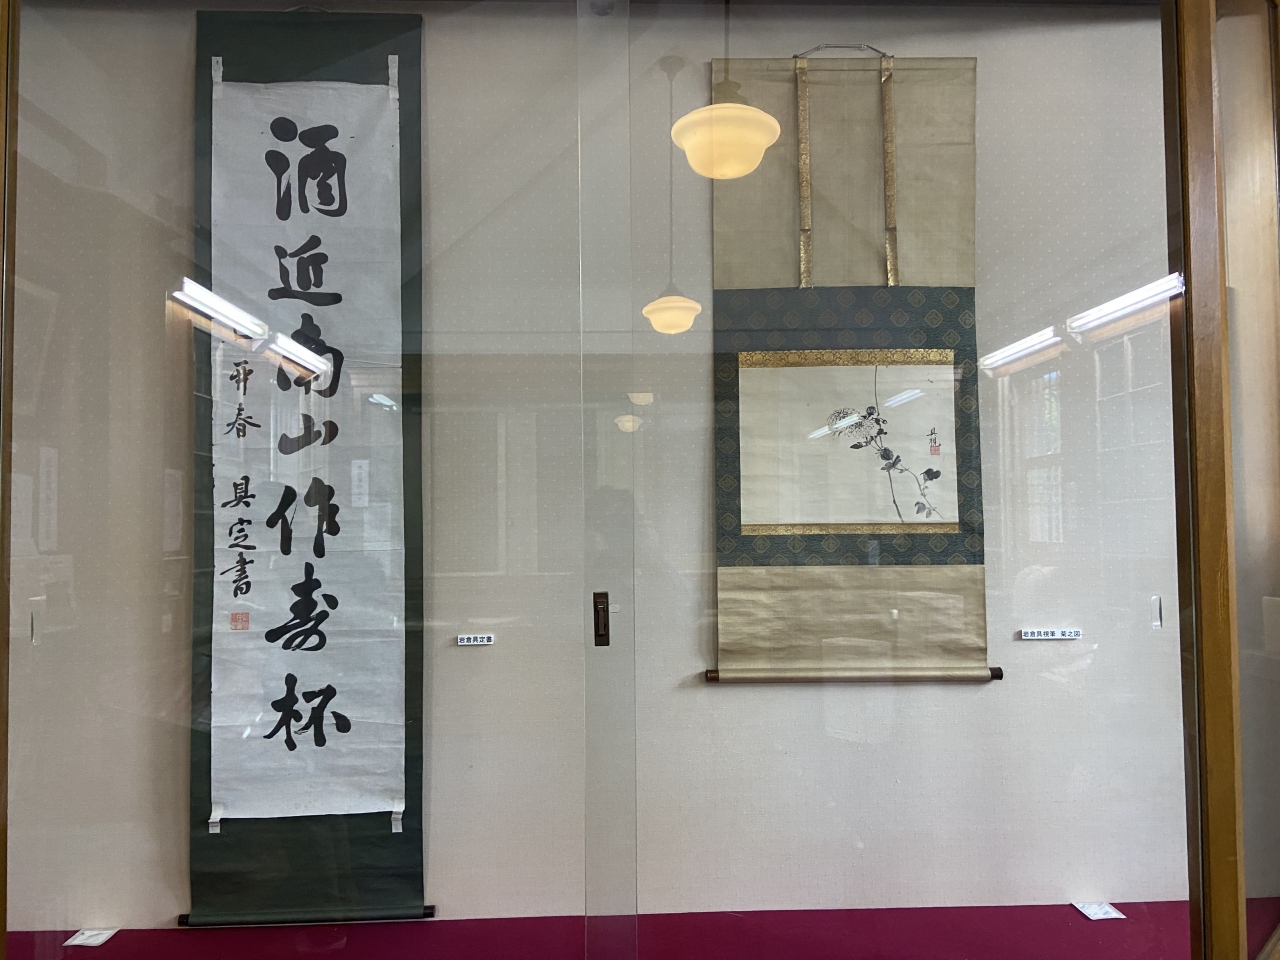 酒近南山作寿杯
春
具定書
岩倉具定書
具視
岩倉具視筆 菊之図